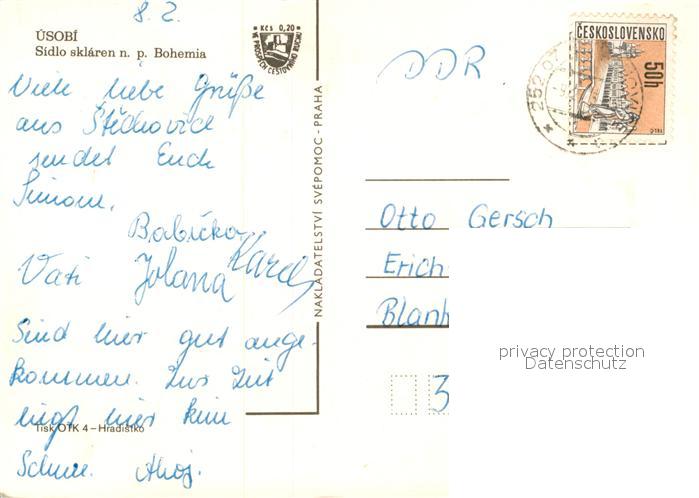 8. 2.
ÚSOBÍ
Sídlo skláren n. p. Bohemia
Kčs 0,20
VE PROSPĚCH CESTOVNÍHO RUCHU
Viele liebe Grüße
aus Štěchovice
sendet Euch
Simone,
Babička
Vati Jolana Karel
Sind hier gut ange-
kommen. Zur Zeit
liegt hier kein
Schnee. Ahoj.
Tisk OTK 4 – Hradištko
NAKLADATELSTVÍ SVÉPOMOC - PRAHA
DDR
ČESKOSLOVENSKO
50h
252 0
Otto Gersch
Erich
Blank
3
privacy protection
Datenschutz